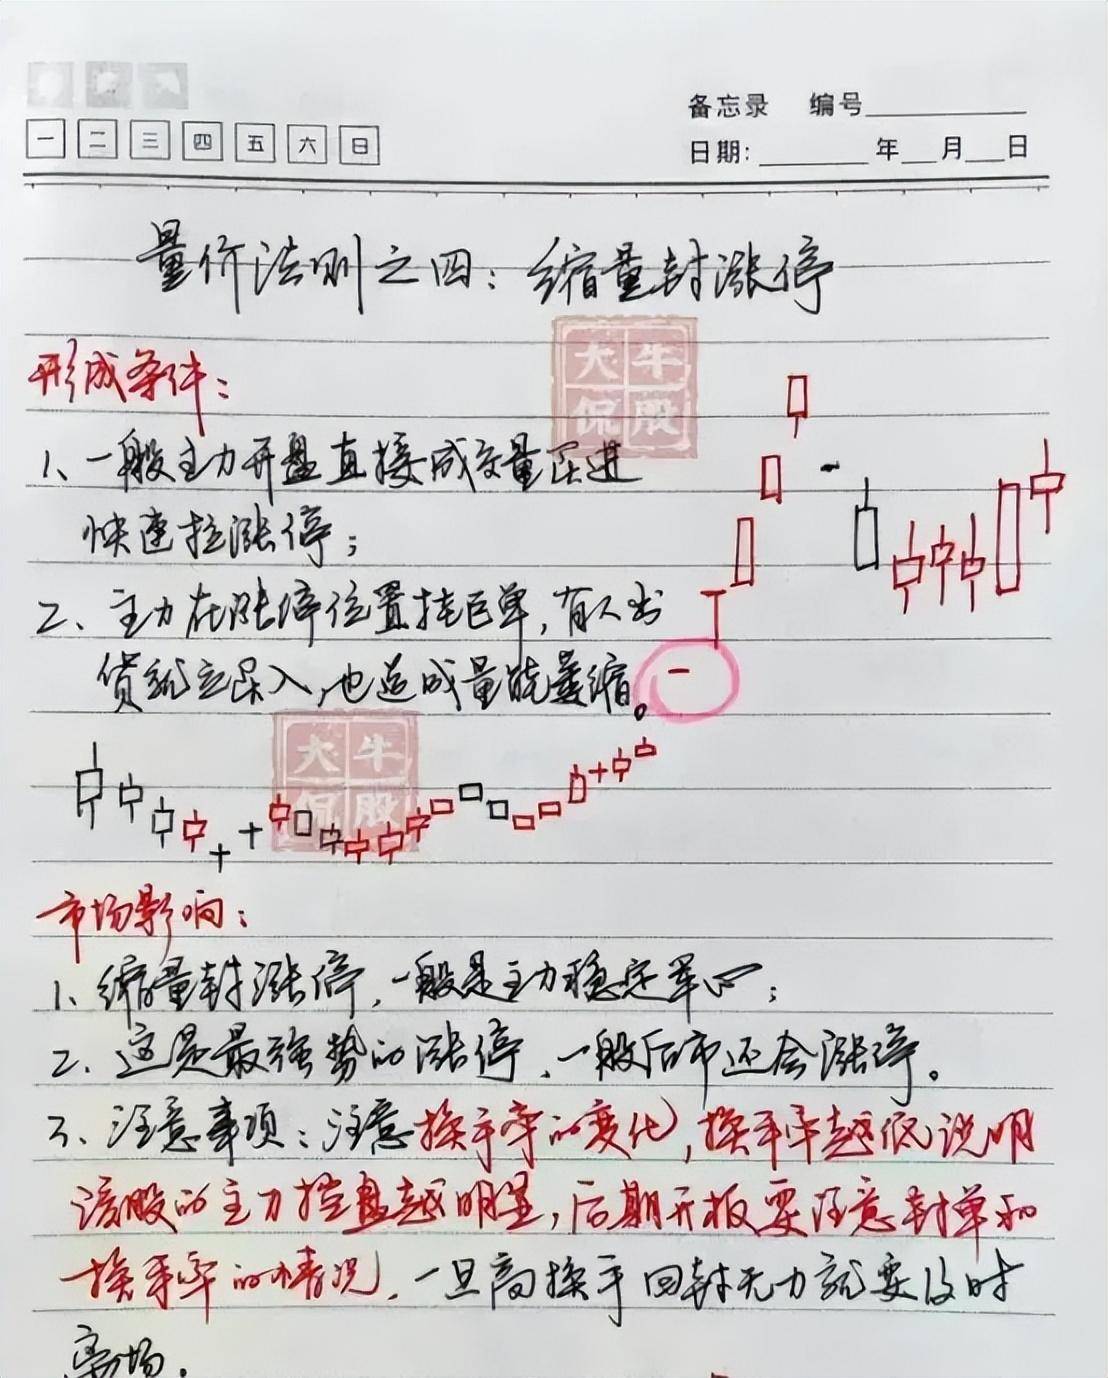 备忘录 编号
一 二 三 四 五 六 日
日期: 年 月 日
量价法则之四：缩量封涨停
大牛
侃股
形成条件：
1、一般主力开盘直接成交量压进
快速拉涨停；
2、主力在涨停位置挂巨单，有人出
货就立买入，也造成量能萎缩。
大牛
侃股
市场影响：
1、缩量封涨停，一般是主力稳定军心；
2、这是最强势的涨停，一般后市还会涨停。
3、注意事项：注意换手率的变化，换手率越低说明
该股的主力控盘越明显，后期开板要注意封单和
换手率的情况，一旦高换手回封无力就要及时
离场。